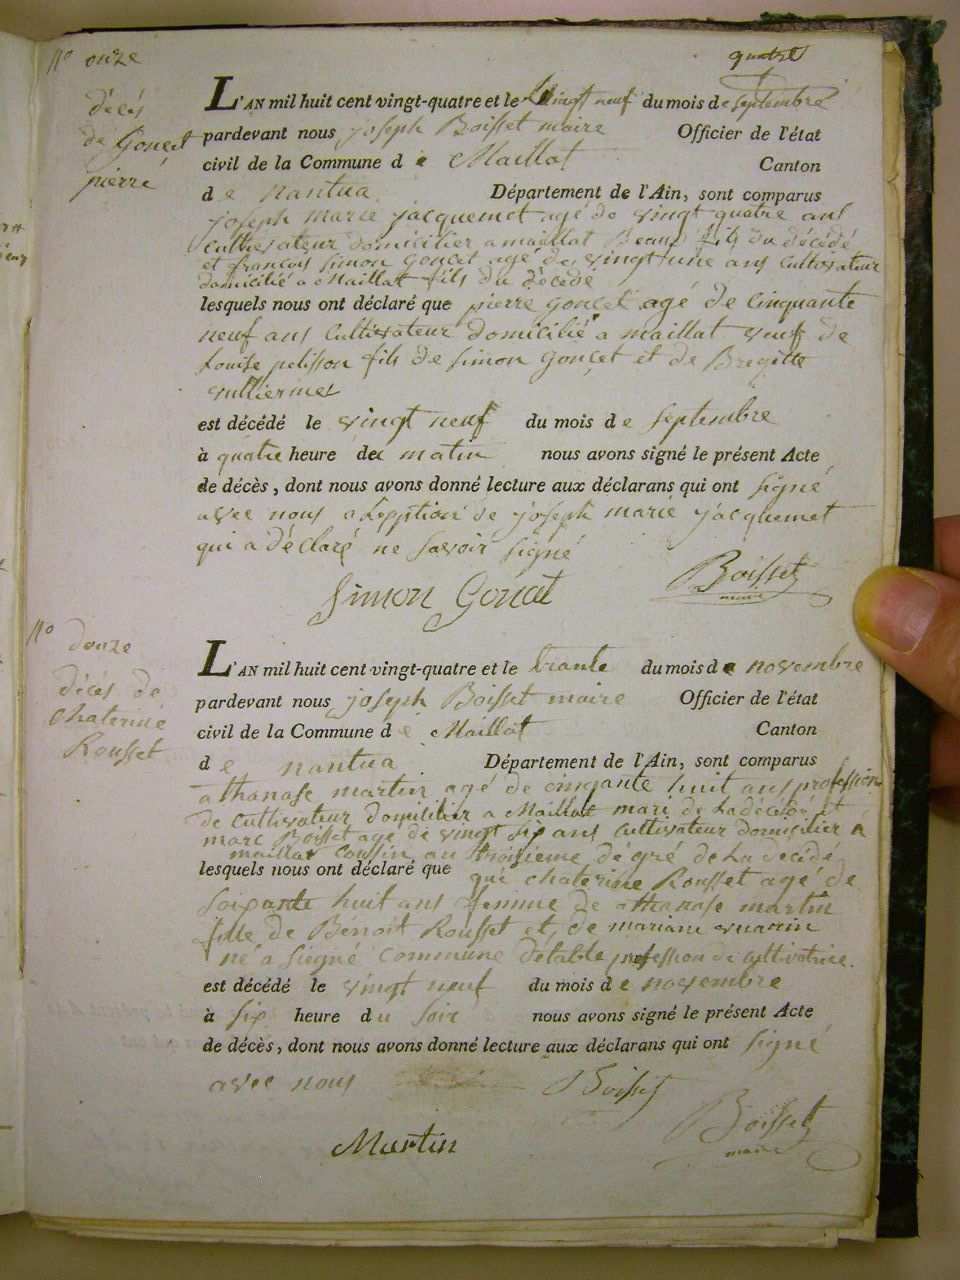 quatre
N° onze
décés
de Goncet
pierre
L'AN mil huit cent vingt-quatre et le vingt neuf du mois de septembre
pardevant nous joseph Boisset maire Officier de l'état
civil de la Commune de Maillat Canton
de nantua Département de l'Ain, sont comparus
joseph marie jacquemet agé de vingt quatre ans
cultivateur domicilier a maillat Beau fils du décédé
et françois simon Goncet agé de vingt une ans cultivateur
domicilié a Maillat fils du décédé
lesquels nous ont déclaré que pierre goncet agé de cinquante
neuf ans cultivateur domicilié a maillat veuf de
Louise pelisson fils de simon Gonçet et de Brigitte
vulliermet
est décédé le vingt neuf du mois de septembre
à quatre heure de matin nous avons signé le présent Acte
de décès, dont nous avons donné lecture aux déclarans qui ont signé
avec nous de joseph marie jacquemet
qui a déclaré ne savoir signé
Simon Goncet Boisset
maire
N° douze
décés de
chaterine
Rousset
L'AN mil huit cent vingt-quatre et le trante du mois de novembre
pardevant nous joseph Boisset maire Officier de l'état
civil de la Commune de Maillat Canton
de nantua Département de l'Ain, sont comparus
athanase martin agé de cinqante huit ans profession
de cultivateur domicilier a Maillat mari de La décédé et
marc Boisset agé de vingt six ans cultivateur domicilier a
maillat coussin au troisieme dégré de La décédé
lesquels nous ont déclaré que que chaterine Rousset agé de
soixante huit ans femme de athanase martin
fille de Bénoit Rousset et de mariane vuarin
né a Siegné commune détable profession de cultivatrice.
est décédé le vingt neuf du mois de novembre
à six heure du soir nous avons signé le présent Acte
de décès, dont nous avons donné lecture aux déclarans qui ont signé
avec nous Boisset
Boisset
maire
Martin